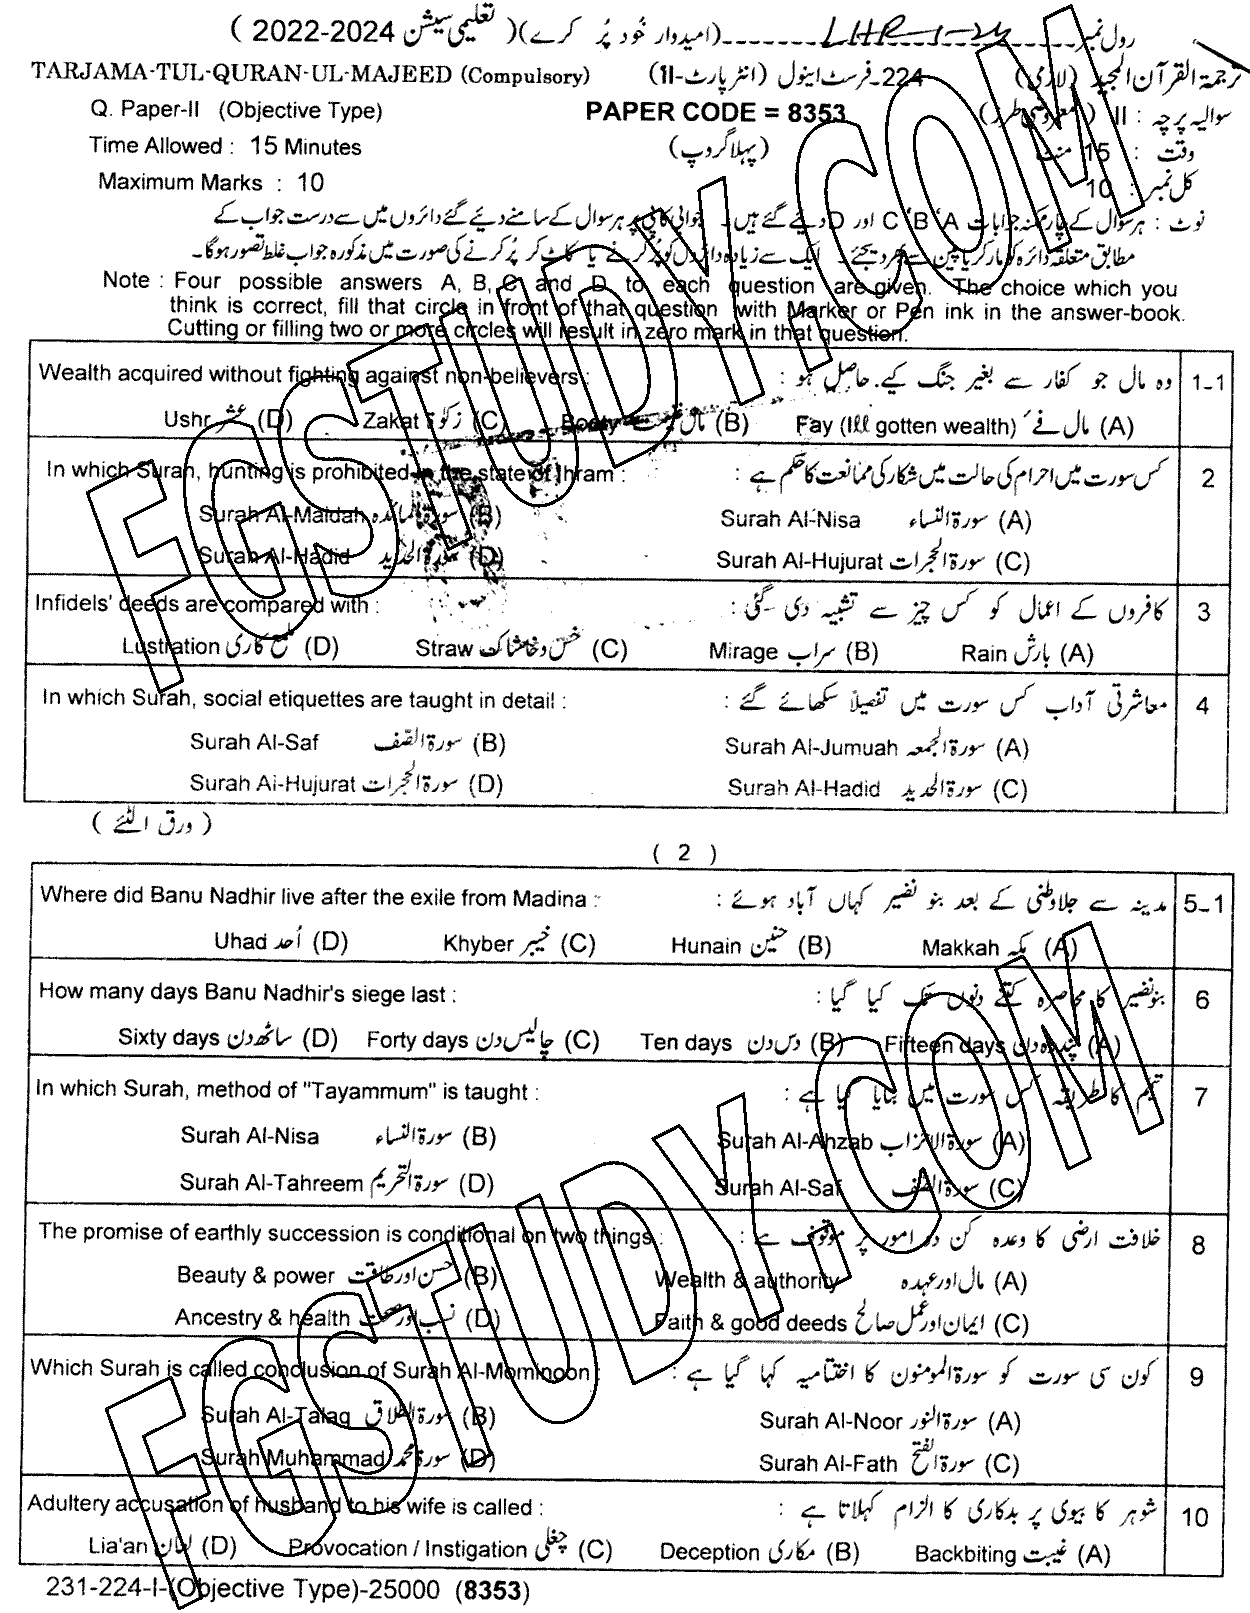 رول نمبر ------ LHR-1-24 ------ (امیدوار خُود پُر کرے) ( تعلیمی سیشن 2024-2022 )
ترجمۃ القرآن المجید (لازمی) 224۔فرسٹ اینول (انٹر پارٹ-II) TARJAMA-TUL-QURAN-UL-MAJEED (Compulsory)
سوالیہ پرچہ : II (معروضی طرز) PAPER CODE = 8353 Q. Paper-II (Objective Type)
وقت : 15 منٹ (پہلا گروپ) Time Allowed : 15 Minutes
کل نمبر : 10 Maximum Marks : 10
نوٹ : ہر سوال کے چار ممکنہ جوابات A ‘B ‘C اور D دیئے گئے ہیں۔ جوابی کاپی پر ہر سوال کے سامنے دیئے گئے دائروں میں سے درست جواب کے
مطابق متعلقہ دائرہ کو مارکر یا پین سے بھر دیجئے۔ ایک سے زیادہ دائروں کو پُر کرنے یا کاٹ کر پُر کرنے کی صورت میں مذکورہ جواب غلط تصور ہوگا۔
Note : Four possible answers A, B, C and D to each question are given. The choice which you
think is correct, fill that circle in front of that question with Marker or Pen ink in the answer-book.
Cutting or filling two or more circles will result in zero mark in that question.
1-1 وہ مال جو کفار سے بغیر جنگ کیے حاصل ہو : Wealth acquired without fighting against non-believers :
(A) مال فے Fay (Ill gotten wealth) (B) مال غنیمت Booty (C) زکوٰۃ Zakat (D) عشر Ushr
2 کس سورت میں احرام کی حالت میں شکار کی ممانعت کا حکم ہے : In which Surah, hunting is prohibited in the state of Ihram :
(A) سورۃ النساء Surah Al-Nisa (B) سورۃ المائدہ Surah Al-Maidah
(C) سورۃ الحجرات Surah Al-Hujurat (D) سورۃ الحدید Surah Al-Hadid
3 کافروں کے اعمال کو کس چیز سے تشبیہ دی گئی : Infidels' deeds are compared with :
(A) بارش Rain (B) سراب Mirage (C) خس و خاشاک Straw (D) ملمع کاری Lustration
4 معاشرتی آداب کس سورت میں تفصیلاً سکھائے گئے : In which Surah, social etiquettes are taught in detail :
(A) سورۃ الجمعہ Surah Al-Jumuah (B) سورۃ الصّف Surah Al-Saf
(C) سورۃ الحدید Surah Al-Hadid (D) سورۃ الحجرات Surah Al-Hujurat
( ورق الٹئے )
( 2 )
5-1 مدینہ سے جلاوطنی کے بعد بنو نضیر کہاں آباد ہوئے : Where did Banu Nadhir live after the exile from Madina :
(A) مکہ Makkah (B) حنین Hunain (C) خیبر Khyber (D) اُحد Uhad
6 بنو نضیر کا محاصرہ کتنے دنوں تک کیا گیا : How many days Banu Nadhir's siege last :
(A) پندرہ دن Fifteen days (B) دس دن Ten days (C) چالیس دن Forty days (D) ساٹھ دن Sixty days
7 تیمّم کا طریقہ کس سورت میں بتایا گیا ہے : In which Surah, method of "Tayammum" is taught :
(A) سورۃ الاحزاب Surah Al-Ahzab (B) سورۃ النساء Surah Al-Nisa
(C) سورۃ الصّف Surah Al-Saf (D) سورۃ التحریم Surah Al-Tahreem
8 خلافت ارضی کا وعدہ کن دو امور پر موقوف ہے : The promise of earthly succession is conditional on two things :
(A) مال اور عہدہ Wealth & authority (B) حسن اور طاقت Beauty & power
(C) ایمان اور عمل صالح Faith & good deeds (D) نسب اور صحت Ancestry & health
9 کون سی سورت کو سورۃ المومنون کا اختتامیہ کہا گیا ہے : Which Surah is called conclusion of Surah Al-Mominoon :
(A) سورۃ النور Surah Al-Noor (B) سورۃ الطلاق Surah Al-Talaq
(C) سورۃ الفتح Surah Al-Fath (D) سورۃ محمدؐ Surah Muhammad
10 شوہر کا بیوی پر بدکاری کا الزام کہلاتا ہے : Adultery accusation of husband to his wife is called :
(A) غیبت Backbiting (B) مکاری Deception (C) چغلی Provocation / Instigation (D) لعان Lia'an
231-224-I-(Objective Type)-25000 (8353)
FGSTUDY.COM
FGSTUDY.COM